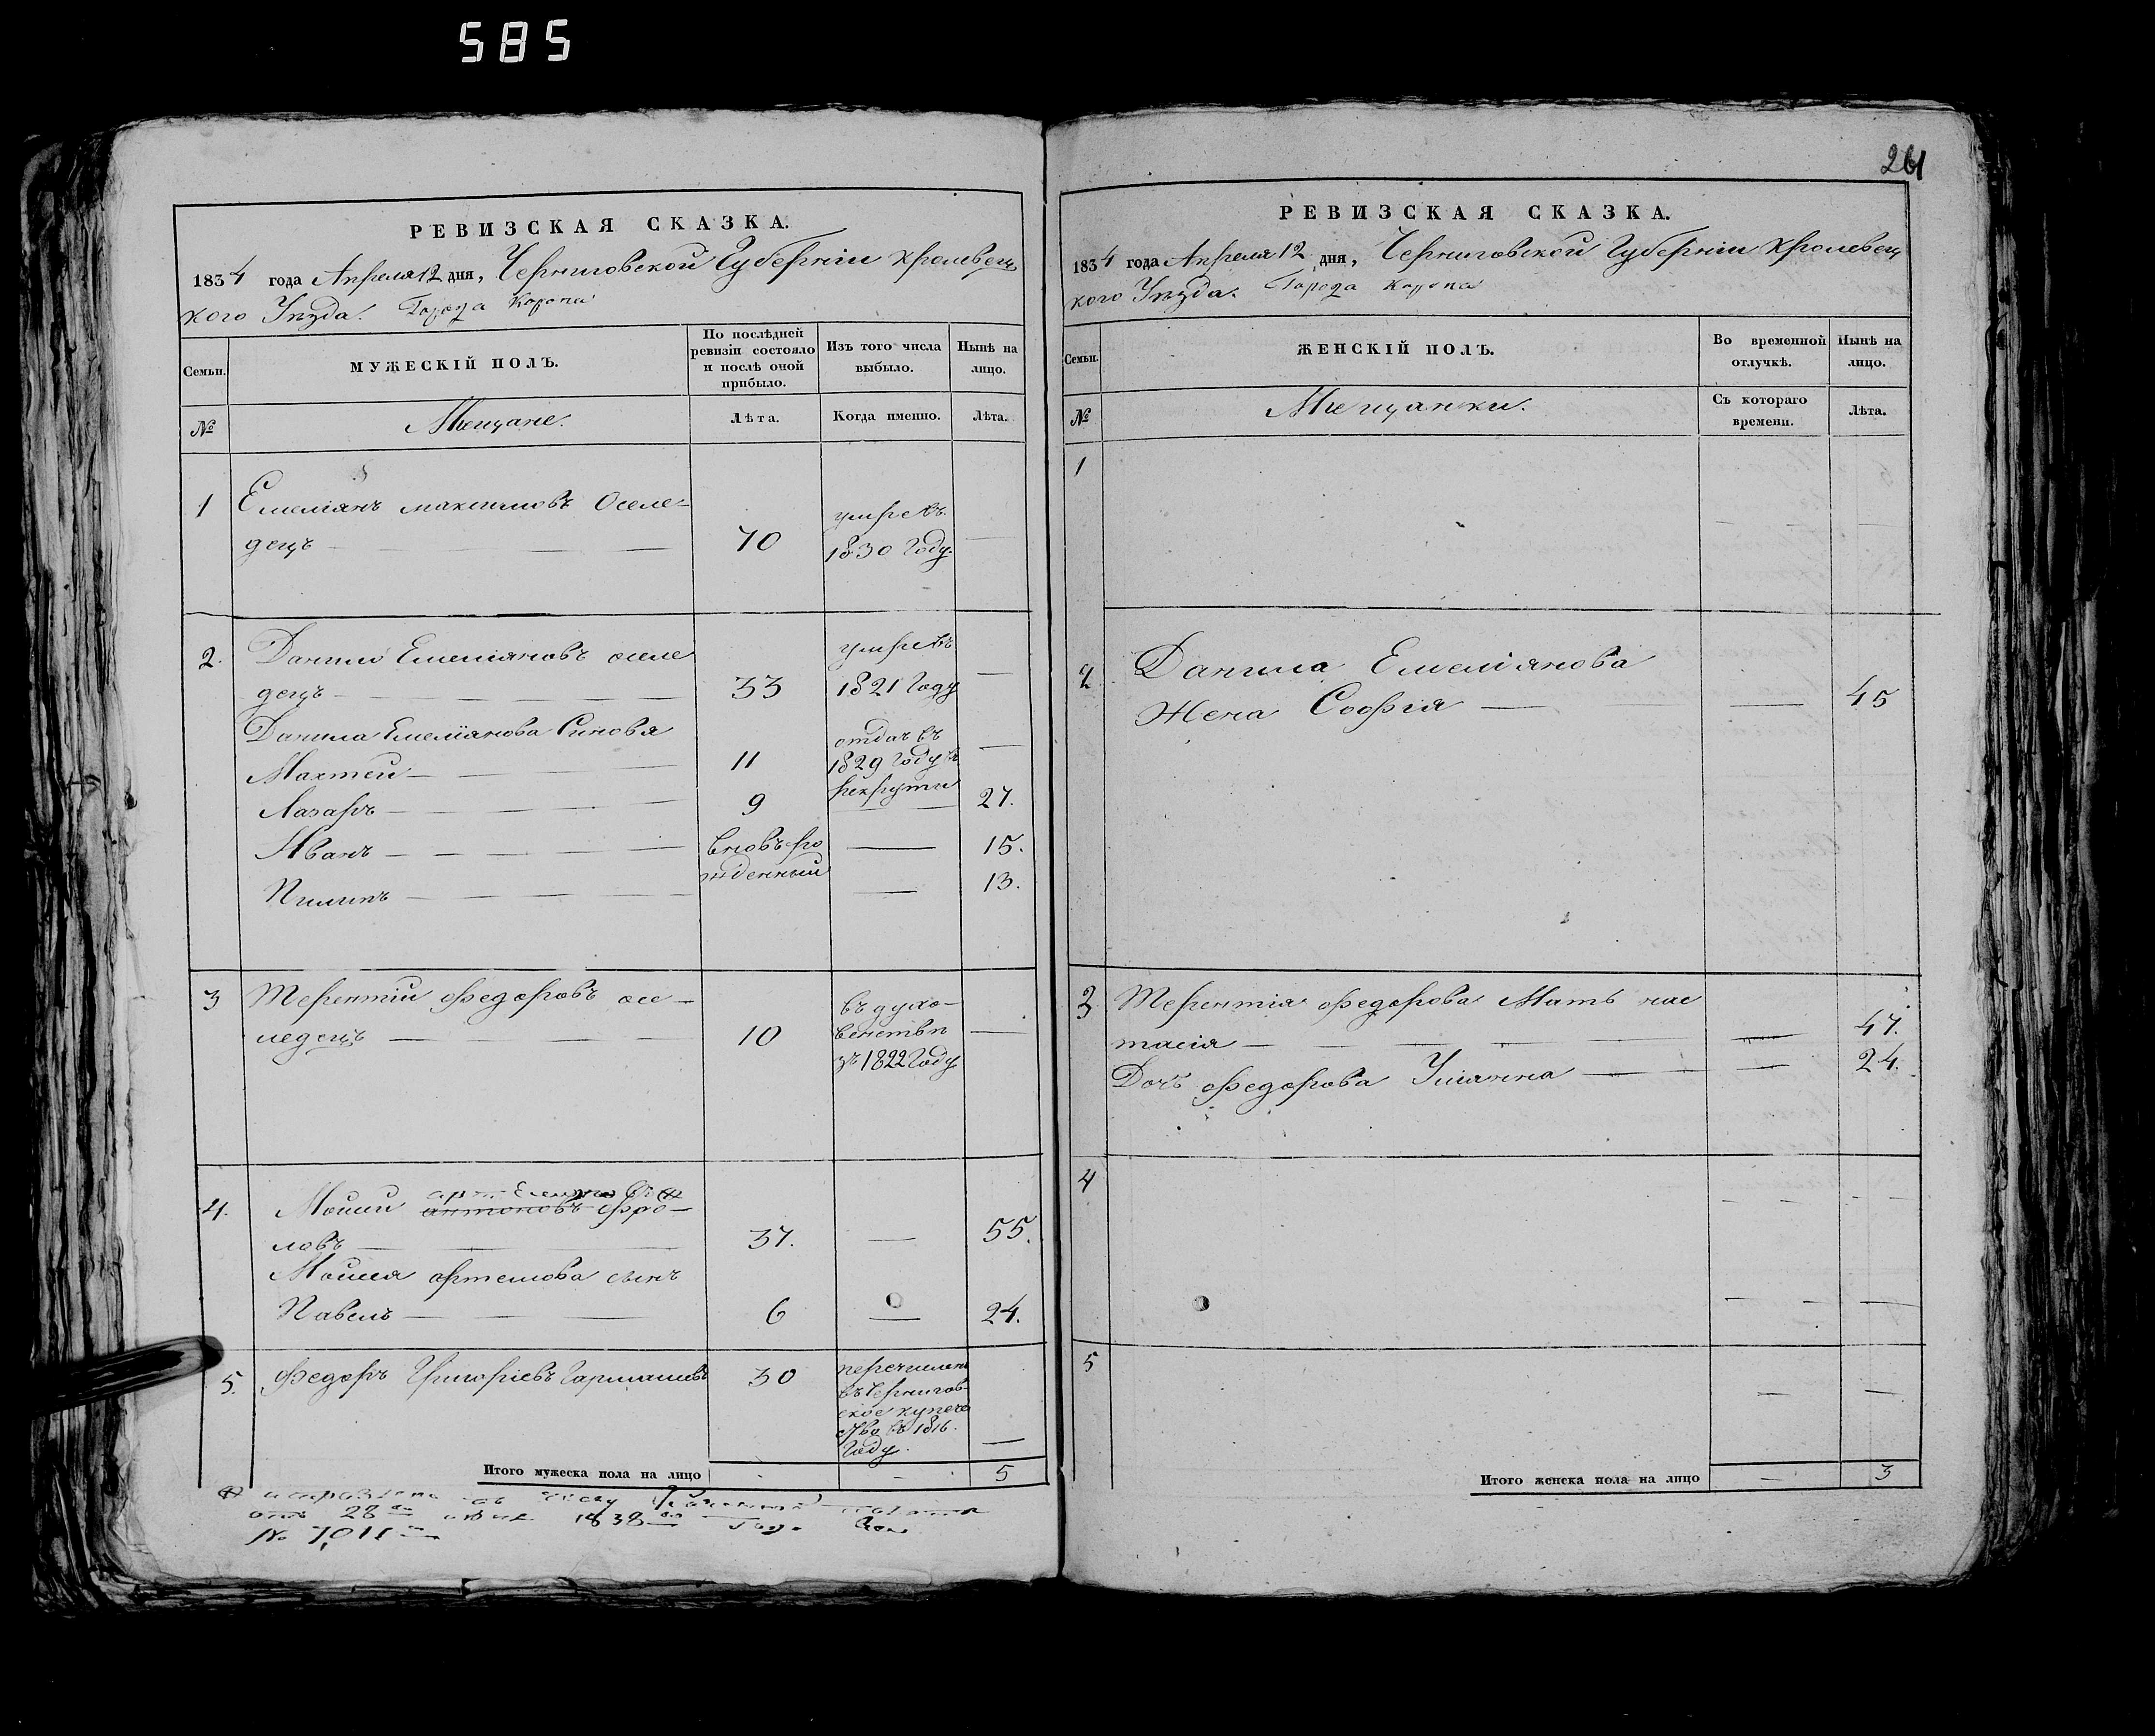 585
261
РЕВИЗСКАЯ СКАЗКА.
1834 года Апреля 12 дня, Черниговской Губернiи Кролевец
кого Уѣзда. Города Коропа
Семьи.
МУЖЕСКІЙ ПОЛЪ.
По послѣдней
ревизіи состояло
и послѣ оной
прибыло.
Изъ того числа
выбыло.
Нынѣ на
лицо.
№
Мещане.
Лѣта.
Когда именно.
Лѣта.
1 Емелiянъ Максимовъ Оселе-
децъ 70 умре въ
1830 Году
2. Данило Емелiяновъ оселе
децъ 33 умре въ
1821 Году
Данила Емелiянова Синовя
Махтей 11 отдан въ
1829 Году въ
рекруты
Лазарь 9 27.
Иванъ вновь ро 15.
жденный
Пилипъ 13.
3 Терентiй Федоровъ осе-
ледецъ 10 въ духо-
венствѣ
зъ 1822 Году
4. Мойсей антоновъ Фро-
ловъ 37. 55.
Мойсея артемова сынъ
Павелъ 6 24.
5. Федоръ Григорiевъ Гармашевъ 30 перечислен
въ Чернигов-
ское купече
ство въ 1816.
Году.
Итого мужеска пола на лицо 5
отъ 28 1838 года
№ 7011
РЕВИЗСКАЯ СКАЗКА.
1834 года Апреля 12 дня, Черниговской Губернiи Кролевец
кого Уѣзда. Города Коропа
Семьи.
ЖЕНСКІЙ ПОЛЪ.
Во временной
отлучкѣ.
Нынѣ на
лицо.
№
Мещанки.
Съ котораго
времени.
Лѣта.
1
2 Данила Емелiянова
Жена Софiя 45
3 Терентiя Федорова Мать нас
тасiя 47.
Дочь Федорова Улiянна 24.
4
5
Итого женска пола на лицо 3